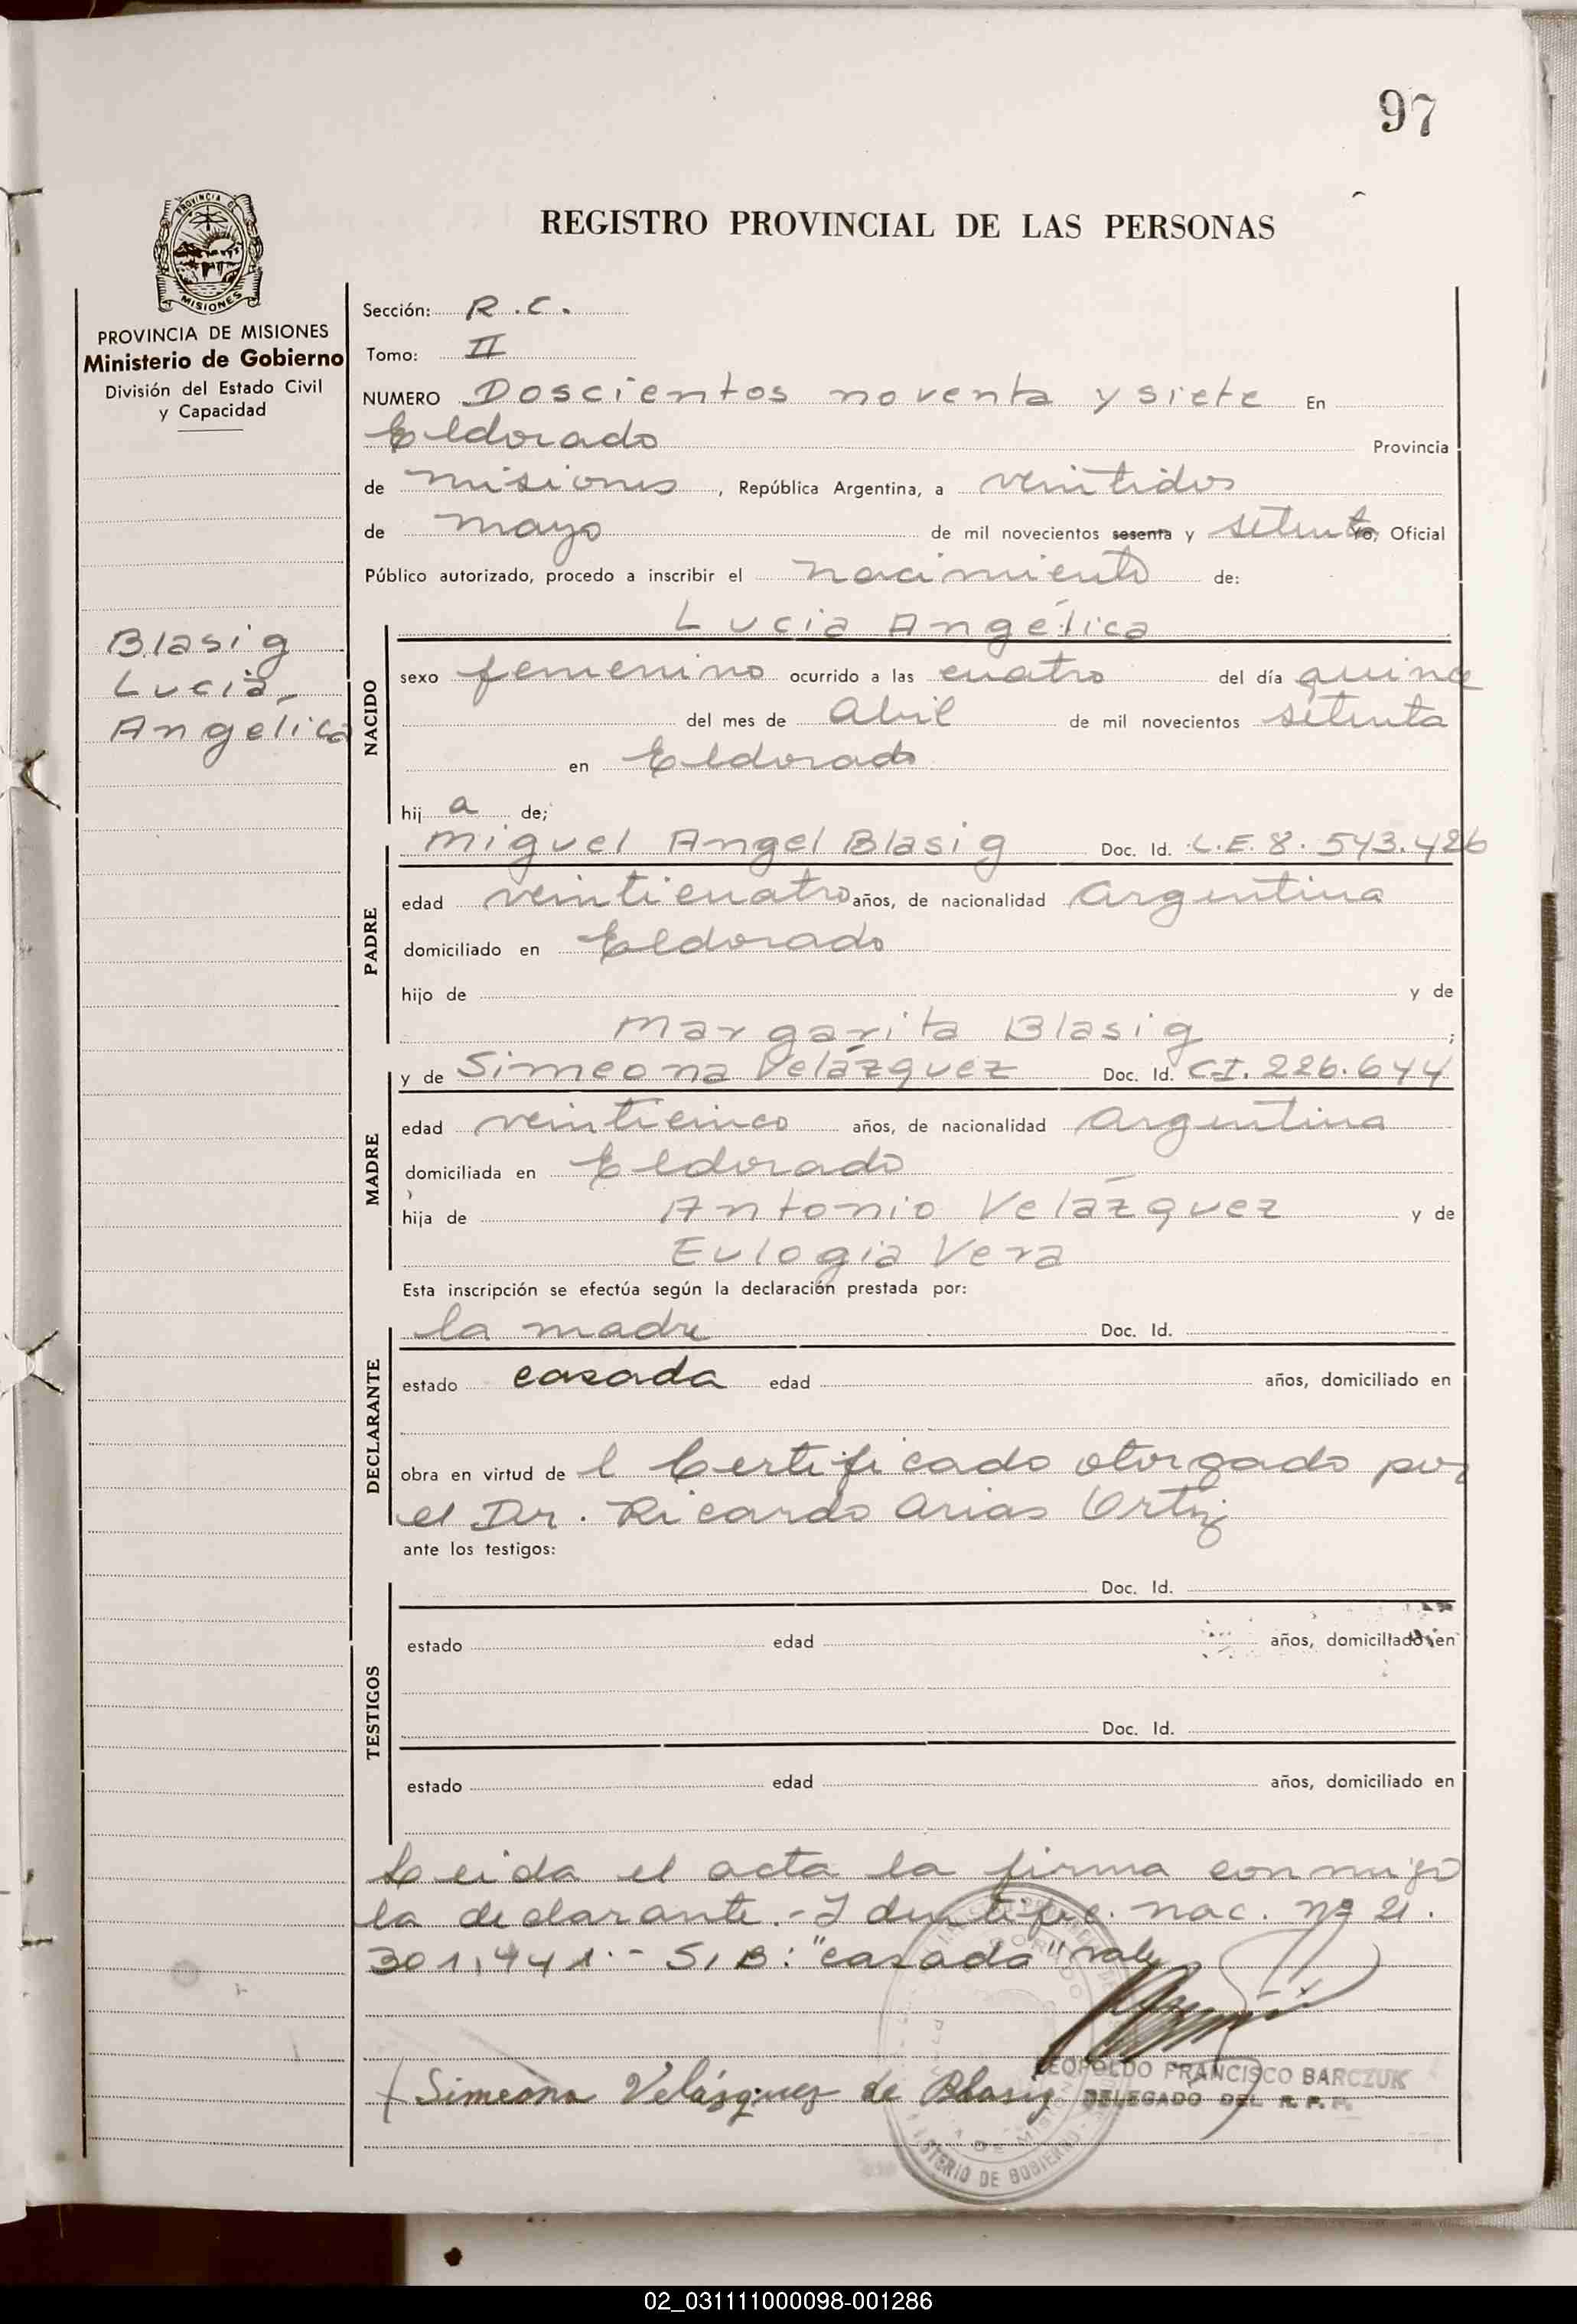 97
PROVINCIA DE
MISIONES
REGISTRO PROVINCIAL DE LAS PERSONAS
PROVINCIA DE MISIONES
Ministerio de Gobierno
División del Estado Civil
y Capacidad
Blasig
Lucia
Angélica
Sección: R.C.
Tomo: II
NUMERO Doscientos noventa y siete En
Eldorado Provincia
de misiones, República Argentina, a veintidos
de mayo de mil novecientos sesenta y setenta Yo, Oficial
Público autorizado, procedo a inscribir el nacimiento de:
NACIDO
Lucia Angélica
sexo femenino ocurrido a las cuatro del día quince
del mes de Abril de mil novecientos setenta
en Eldorado
hij a de;
PADRE
Miguel Angel Blasig Doc. Id. L.E. 8.543.426
edad veinticuatro años, de nacionalidad Argentina
domiciliado en Eldorado
hijo de y de
Margarita Blasig ;
MADRE
y de Simeona Velázquez Doc. Id. C.I. 226.644
edad veinticinco años, de nacionalidad Argentina
domiciliada en Eldorado
hija de Antonio Velázquez y de
Eulogia Vera
Esta inscripción se efectúa según la declaración prestada por:
DECLARANTE
la madre Doc. Id.
estado casada edad años, domiciliado en
obra en virtud de l Certificado otorgado por
el Dr. Ricardo Arias Ortiz
ante los testigos:
TESTIGOS
Doc. Id.
estado edad años, domiciliado en
Doc. Id.
estado edad años, domiciliado en
Leida el acta la firma conmigo
la declarante.- Identific. nac. nº 21.
301,441.- S/B: "casada" vale
LEOPOLDO FRANCISCO BARCZUK
DELEGADO DEL R. P. P.
Simeona Velásquez de Blasig
MINISTERIO DE GOBIERNO
02_031111000098-001286